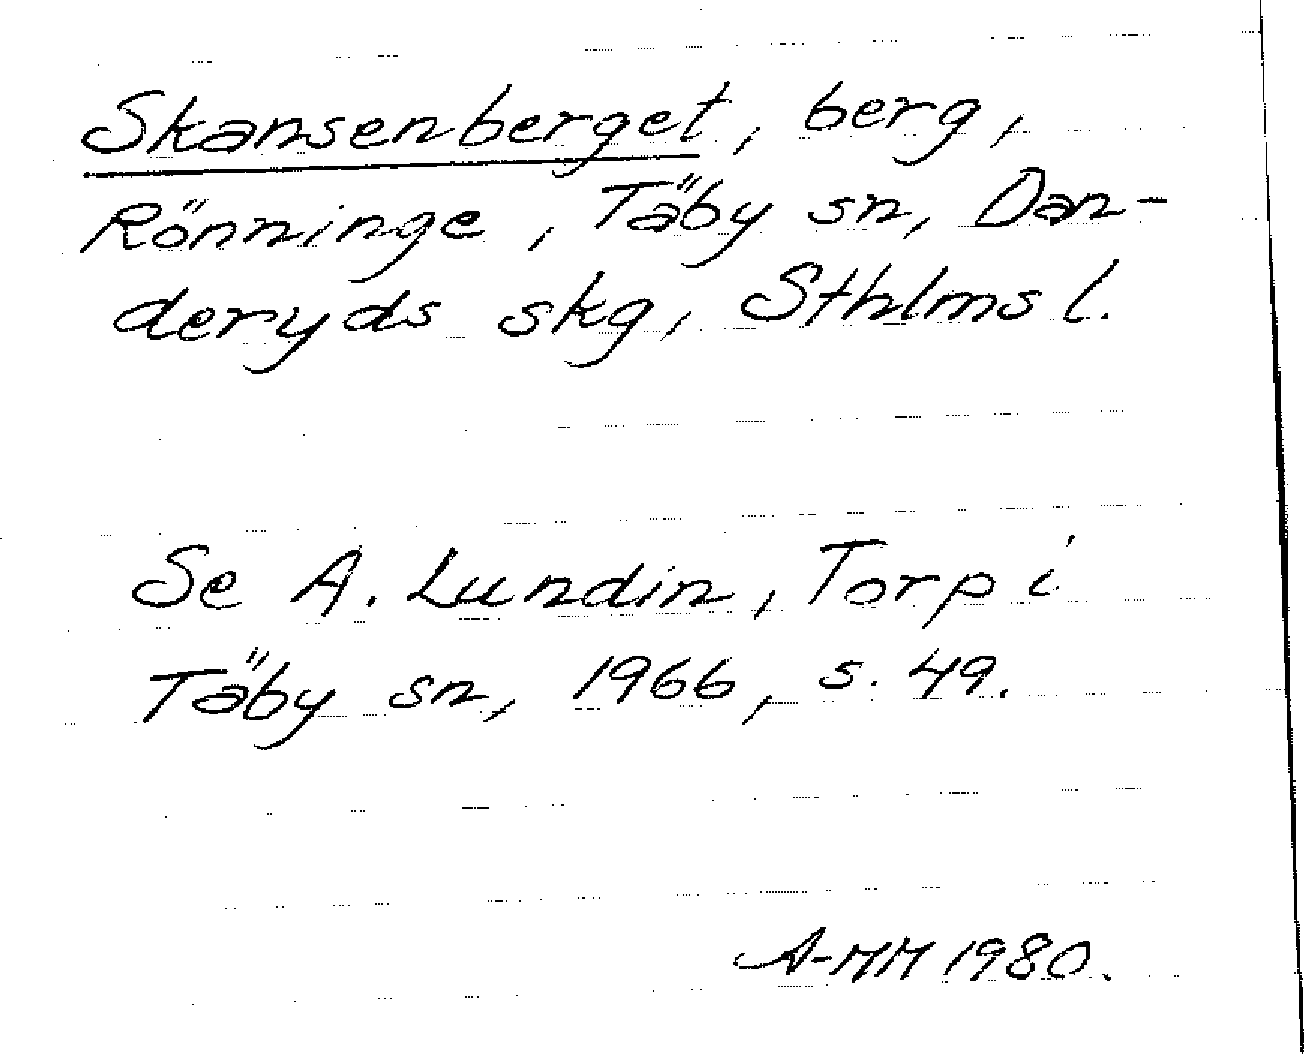 Skansenberget, berg,
Rönninge, Täby sn, Dan-
deryds skg, Sthlms l.
Se A. Lundin, Torp i
Täby sn, 1966, s. 49.
A-MM 1980.